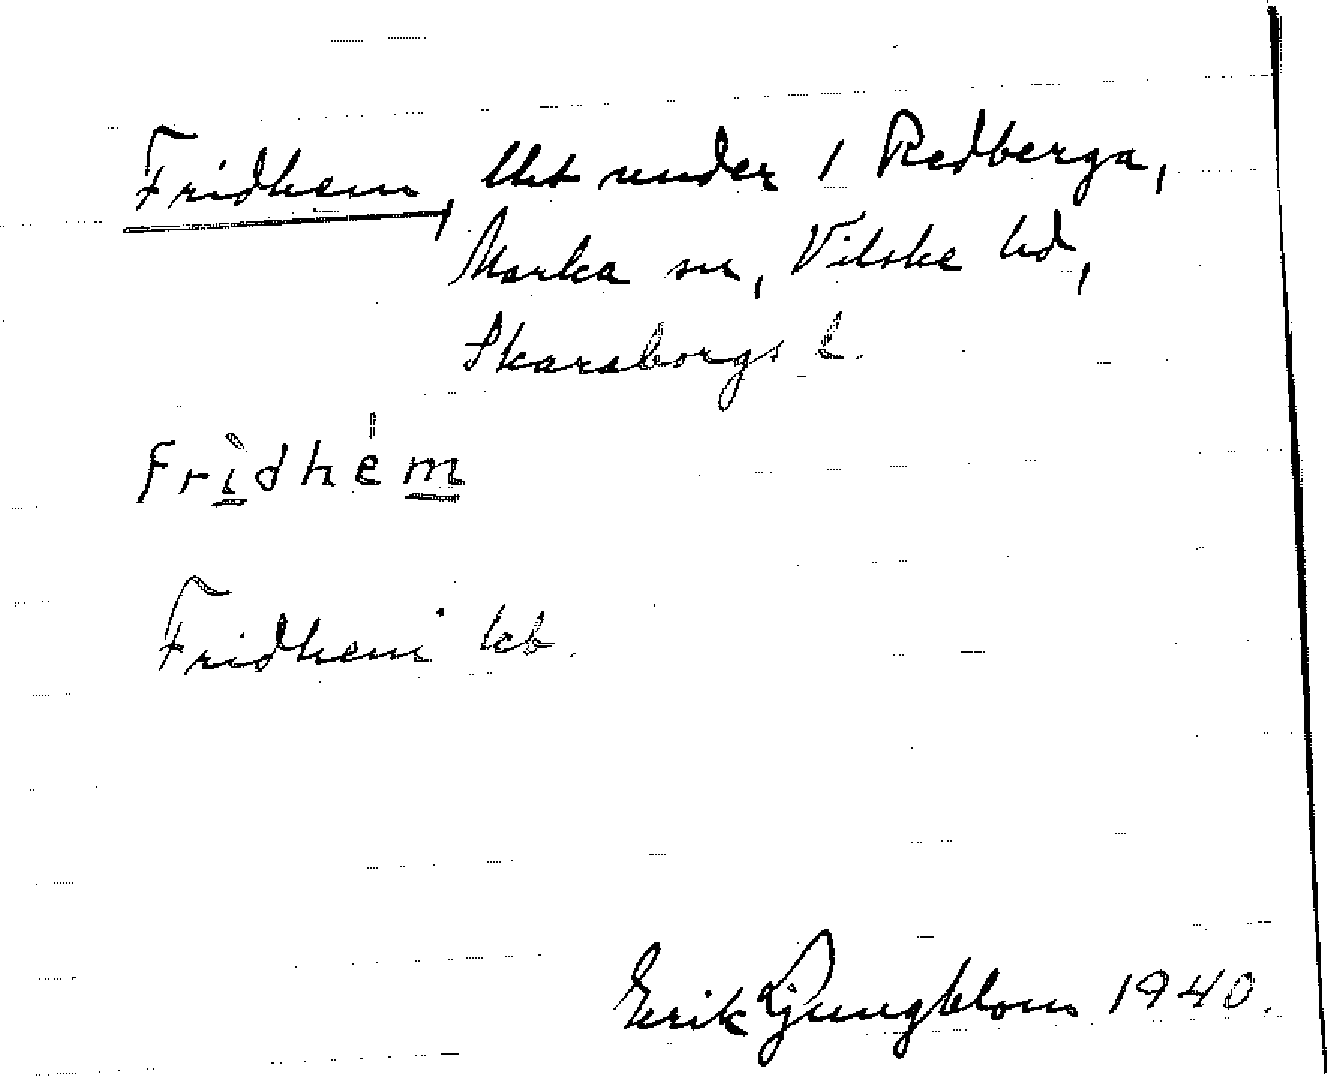 Fridhem, lht under 1 Redberga,
Marka sn, Vilske hd,
Skaraborgs l.
Frìdhém
Fridhem kb.
Erik Ljungblom 1940.